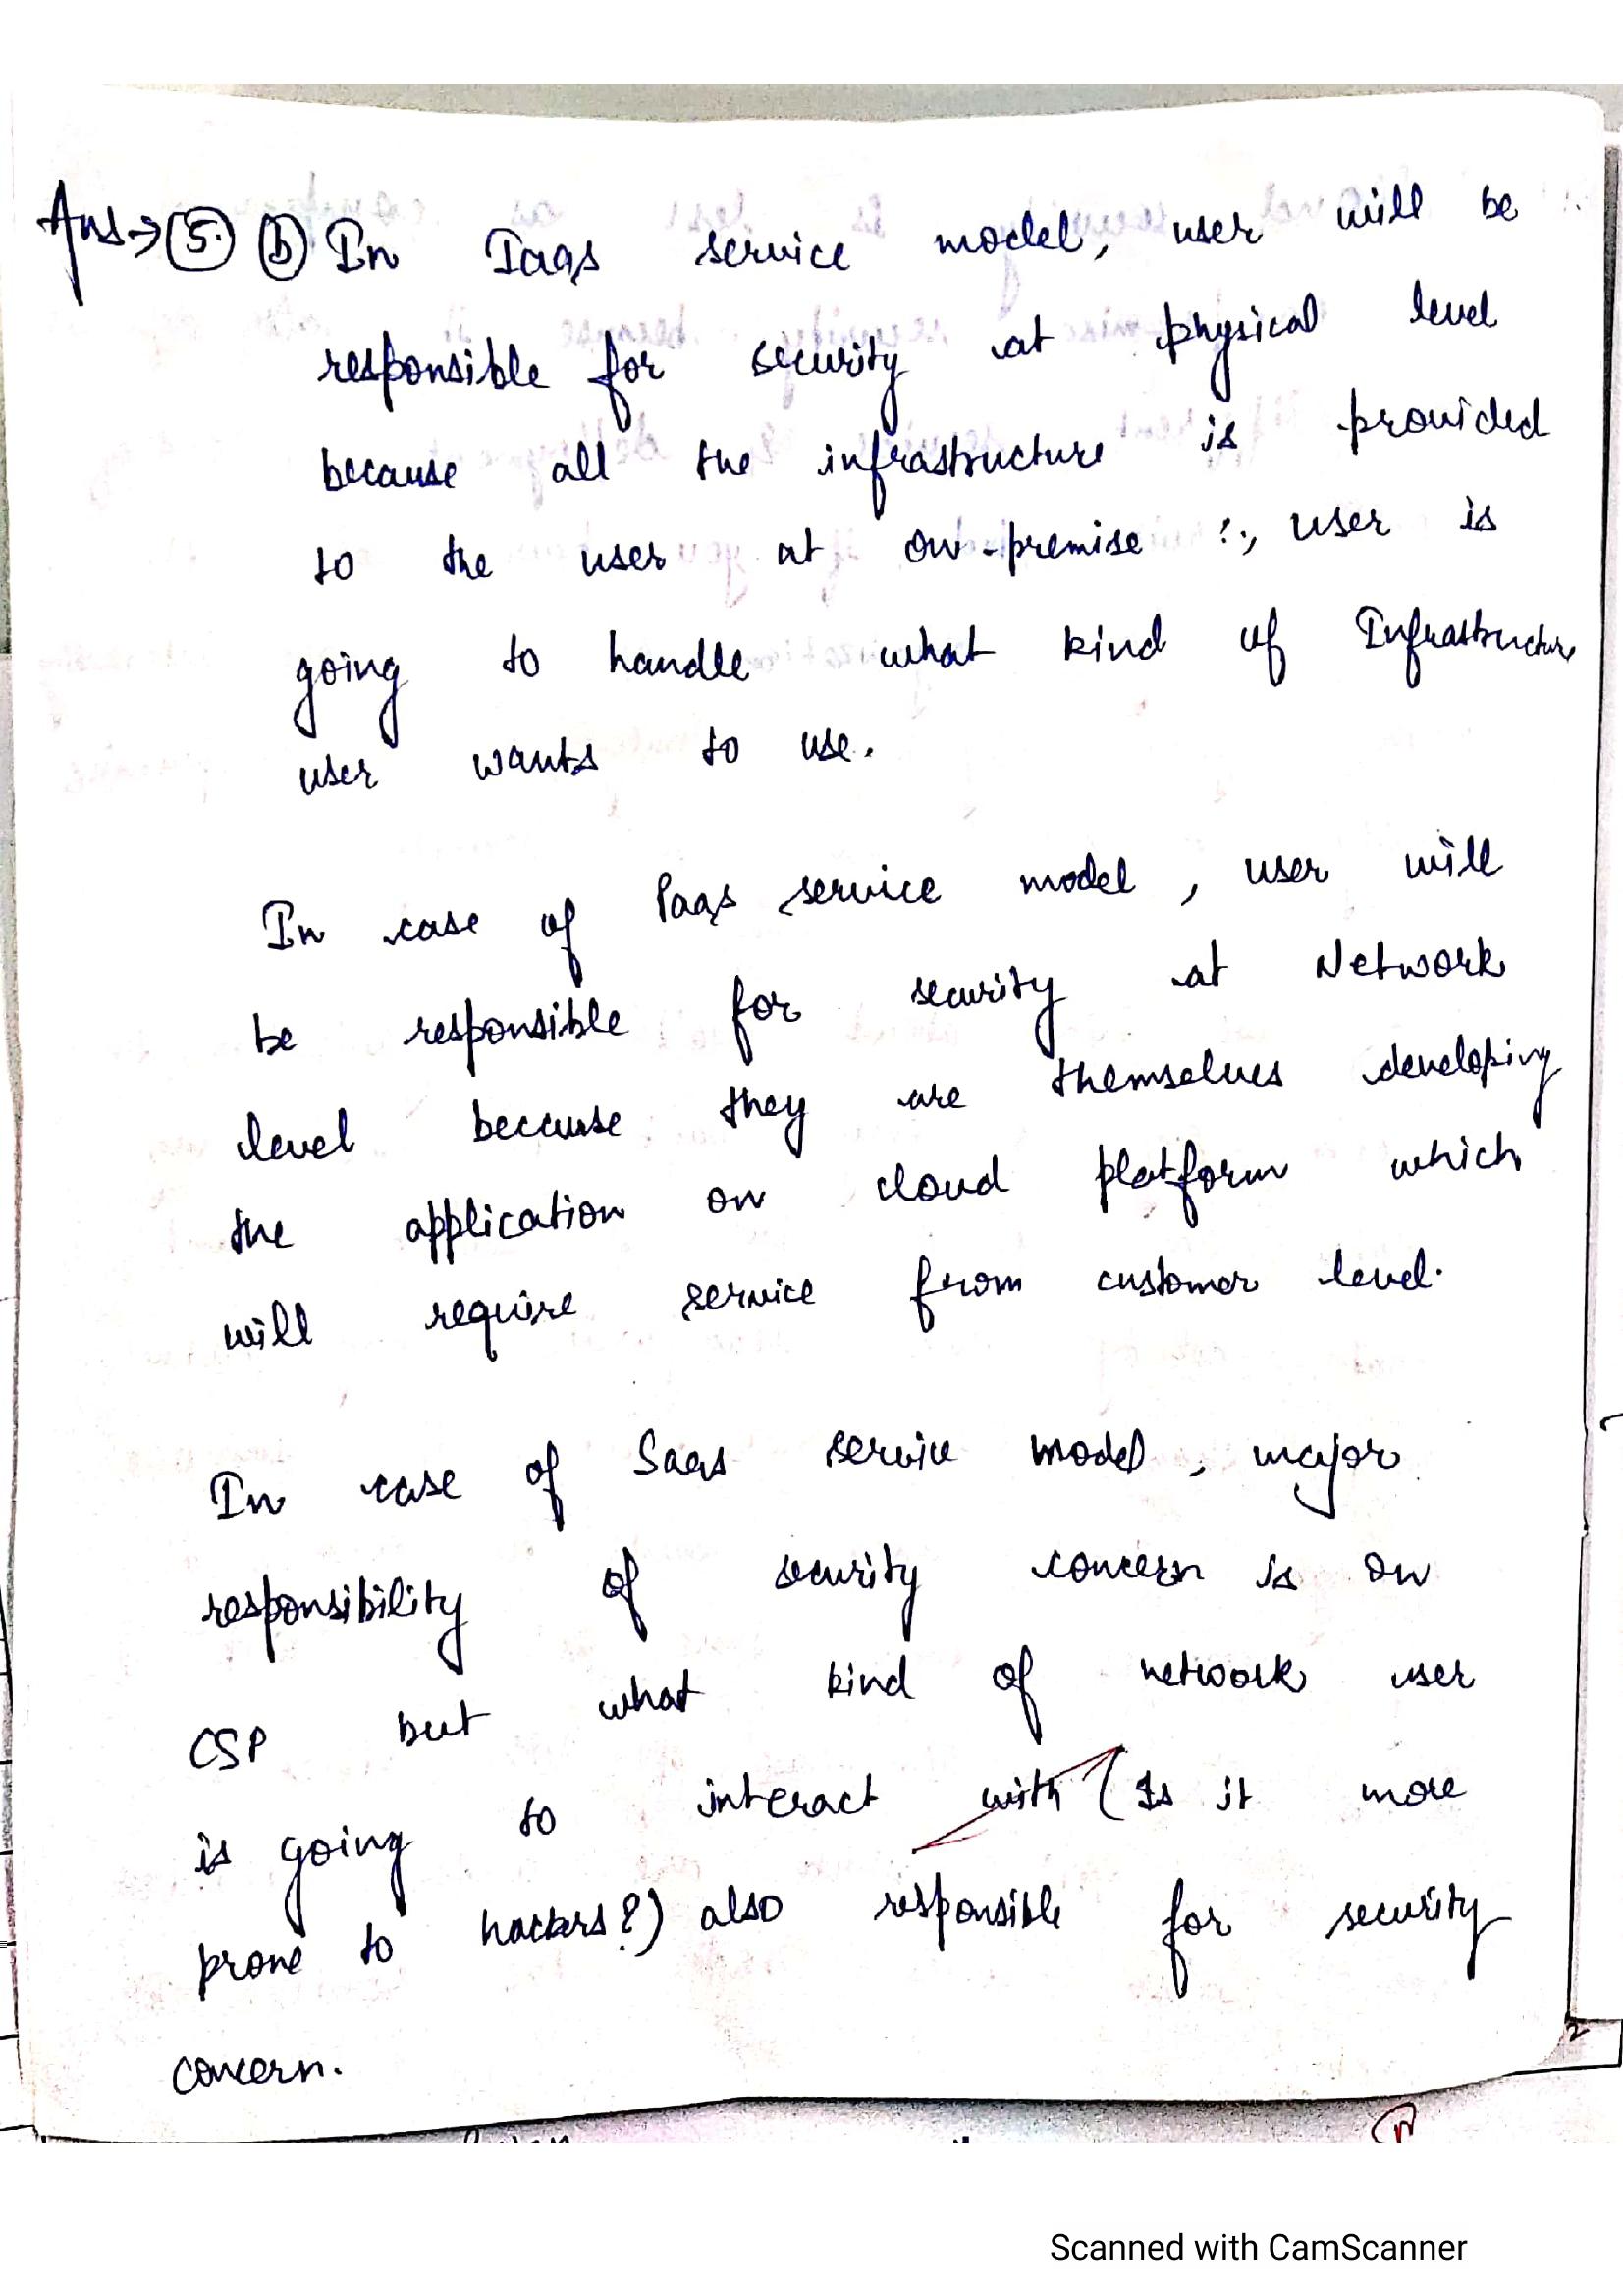 Ans→ 5. b In Iaas service model, user will be
responsible for security at physical level
because all the infrastructure is provided
to the user at on-premise ∵, user is
going to handle what kind of Infrastructure
user wants to use.
In case of Paas service model, user will
be responsible for security at Network
level because they are themselves developing
the application on cloud platform which
will require service from customer level.
In case of Saas service model, major
responsibility of security concern is on
CSP but what kind of network user
is going to interact with (Is it more
prone to hackers?) also responsible for security
concern.
2
Scanned with CamScanner